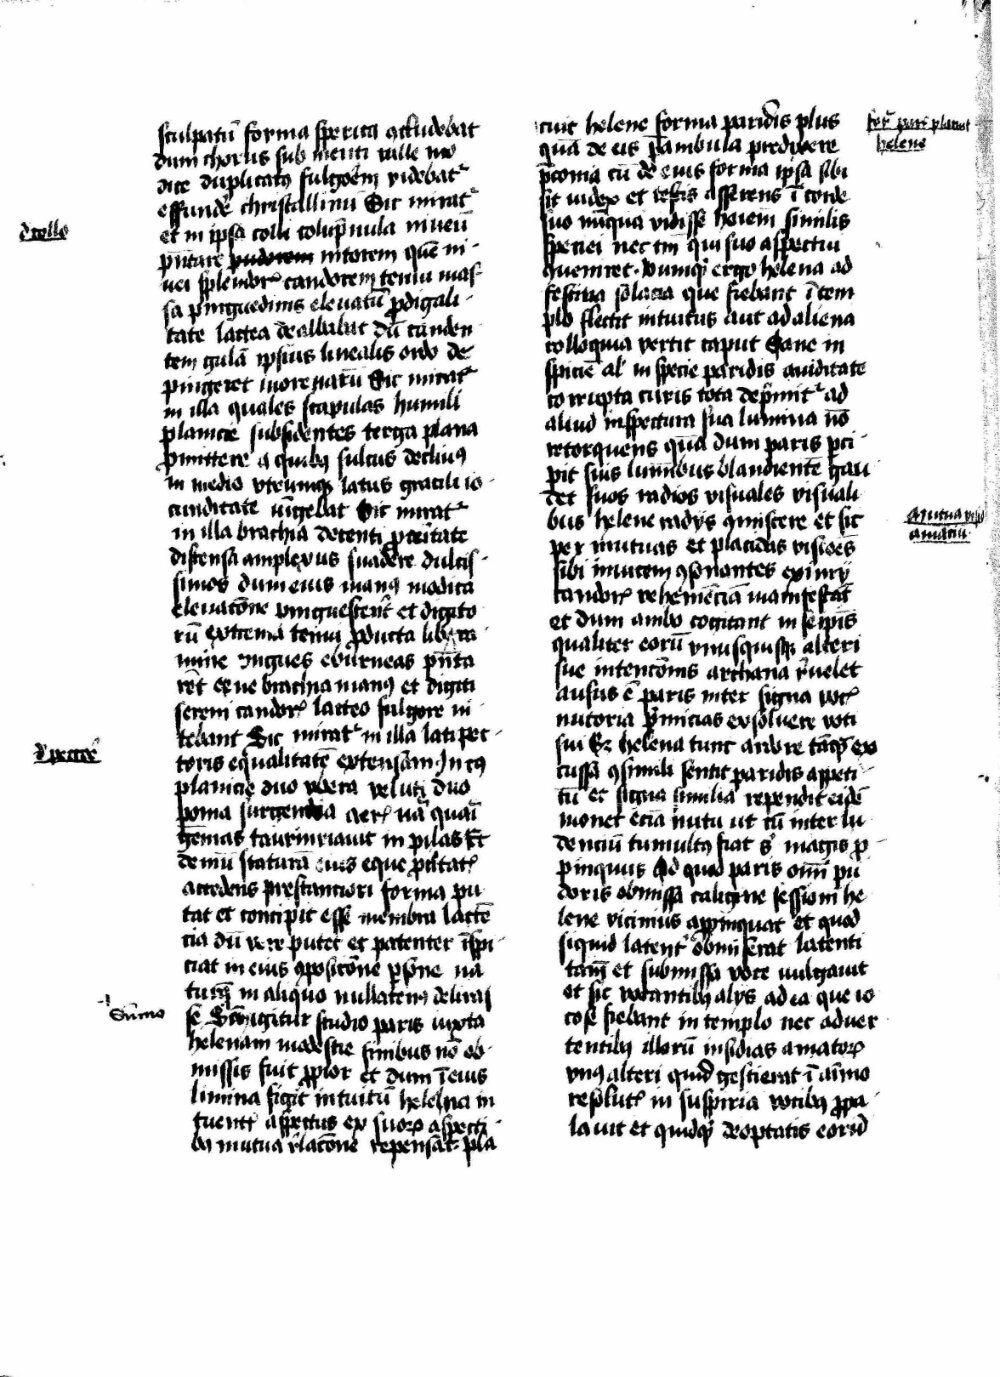 sculpatū forma sperica actludebat
dum chorus sub menti valle mo
dice duplicatꝰ fulgorē videbat᷑
effundē christallinū Sic mirat᷑
et in ipsa colli colūpnula niueū
pn̄tare pudorem nitorem quē ni-
uei splendor᷑ candorem tenui mas-
sa pinguedinis eleuatū ꝓdigali-
tate lactea dealbabat dū canden-
tem gulā ipsius linealis ordo de
pingeret morenarū Sic mirat᷑
in illa quales scapulas humili
planicie subsidentes terga plana
p̄mittere a quibꝰ sulcus decliuꝰ
in medio vtrumqꝫ latus gracili io-
cunditate iūgebat Sic mirat᷑
in illa brachia decenti ꝓceritate
distensa amplexus suadere dulcis-
simos dum eius manꝰ modica
eleuatōne pinguescerēt et digito
rū extrema tenui ꝓducta libera
mine vngues eburneas pn̄ta
rēt eqne brachia manꝰ et digiti
sereni candor᷑ lacteo fulgore ni-
tebant Sic mirat᷑ in illa lati pec-
toris equalitatē extensam In cꝰ
planicie duo vbera veluti duo
poma surgencia aer᷑ nā quasi
gemas taurinriauit in pilas Et
demū staturā eius eque ꝓceritat᷑
accedens prestanciori forma pu
tat et concipit esse membra laten
cia dū vere putet et patenter īspi
ciat in eius ꝯpositōne ꝑsone na
turā in aliquo nullatemꝰ deliras
se Sum̄igitur studio paris iuxta
helenam modestie finibus nō ob-
missis fuit ꝓpior et dum ī eius
limina figit intuitū helena in
tuent᷑ aspectus ex suoꝝ aspecti
bꝰ mutua rl̄atōne repensat. pla
d̄ collo
d̄ pectoē
Sūmo
cuit helene forma paridis plus
quā de eis ꝑambula predixere
p̄conia cū de eius forma ipsa sibi
sit iudex et testis asserens ī corde
suo nūqua vidisse hoīem similis
speciei nec tm̄ qui suo aspectui
ꝯueniret. Numqꝫ ergo helena ad
festiua solacia que fiebant ī tem
plo flectit intuitus aut ad aliena
colloquia vertit caput Sane in
spicie al' in specie paridis auiditate
corrupta curis tota dep̄mit᷑ ad
aliud inspectura sua lumina nō
retorquens quā dum paris ꝑci-
pit suis luminibus blandientē gau-
det suos radios visuales visuali-
bus helene radijs ꝯmiscere et sic
per mutuas et placidas visiōes
sibi inuicem ꝯsonantes eximij
candor᷑ vehemēciā manifestāt
et dum ambo cogitant in se ip̄is
qualiter eorū vnusquisqꝫ alteri
sue intencōnis archana r̄uelet
ausus ē paris inter signa voc᷑
nutoria p̄micias exsoluere voti
sui Et helena tunc ardore tāqꝫ ex
cussa ꝯsimili sentit paridis appeti-
tū et signa similia rependit eidē
monet eciā nutu ut cū inter lu-
denciū tumultꝰ fiat s' magis ꝓ-
pinquus Ad quod paris omī pu
doris obmissa caligine sessioni he
lene vicinius appinquat et quod
siquid latent᷑ obmiserat latenti
tam̄ et submissa voce vulgauit
et sic vacantibꝰ alijs ad ea que io
cose fiebant in templo nec aduer-
tentibꝰ illorū insidias amatoꝝ
vnꝰ alteri quid gestierat ī aīmo
resolut᷑ in suspiria vocibꝰ ꝓpa-
lauit et quidqꝫ deoptatis eorū
for᷑ pari placuit
helene
Mutua visio
amanciū